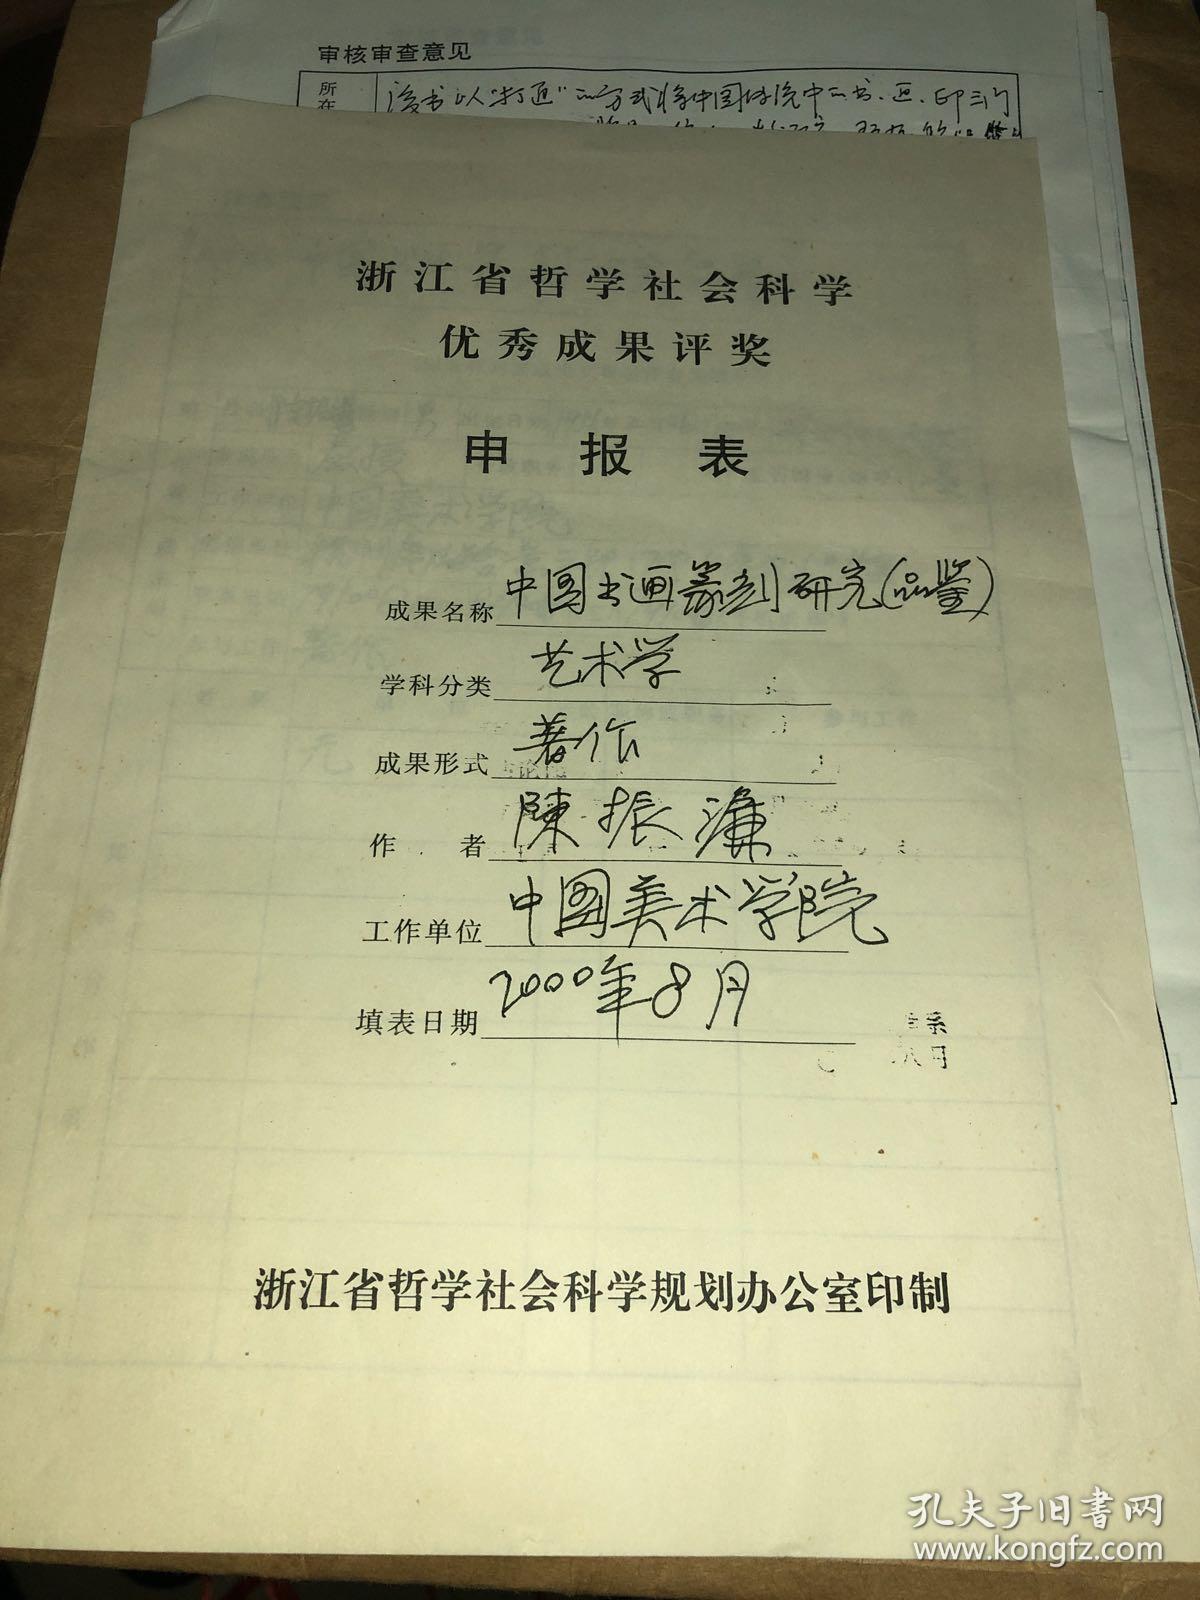 审核审查意见
所在
该书以“打通”的方式将中国传统中的书、画、印三门
浙江省哲学社会科学
优秀成果评奖
申报表
成果名称 中国书画篆刻研究(品鉴)
学科分类 艺术学
成果形式 著作
作者 陳振濂
工作单位 中国美术学院
填表日期 2000年8月
浙江省哲学社会科学规划办公室印制
孔夫子旧书网
www.kongfz.com